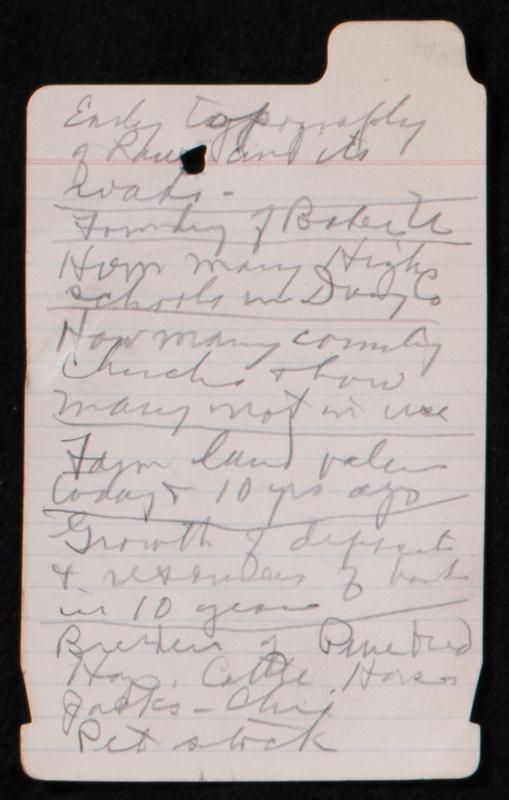 Early topography
of and its
roads -
Founding of
How many High
schools in Co
How many country
Churches & how
many not in use
Farm land values
today & 10 yrs ago
Growth of deposits
& resources of banks
in 10 years
Breeders of Purebred
Hogs, Cattle, Horses
Jacks - Chix
Pet stock